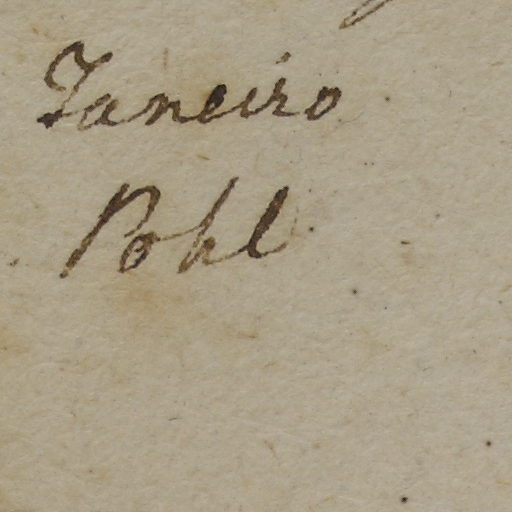 Janeiro
Pohl